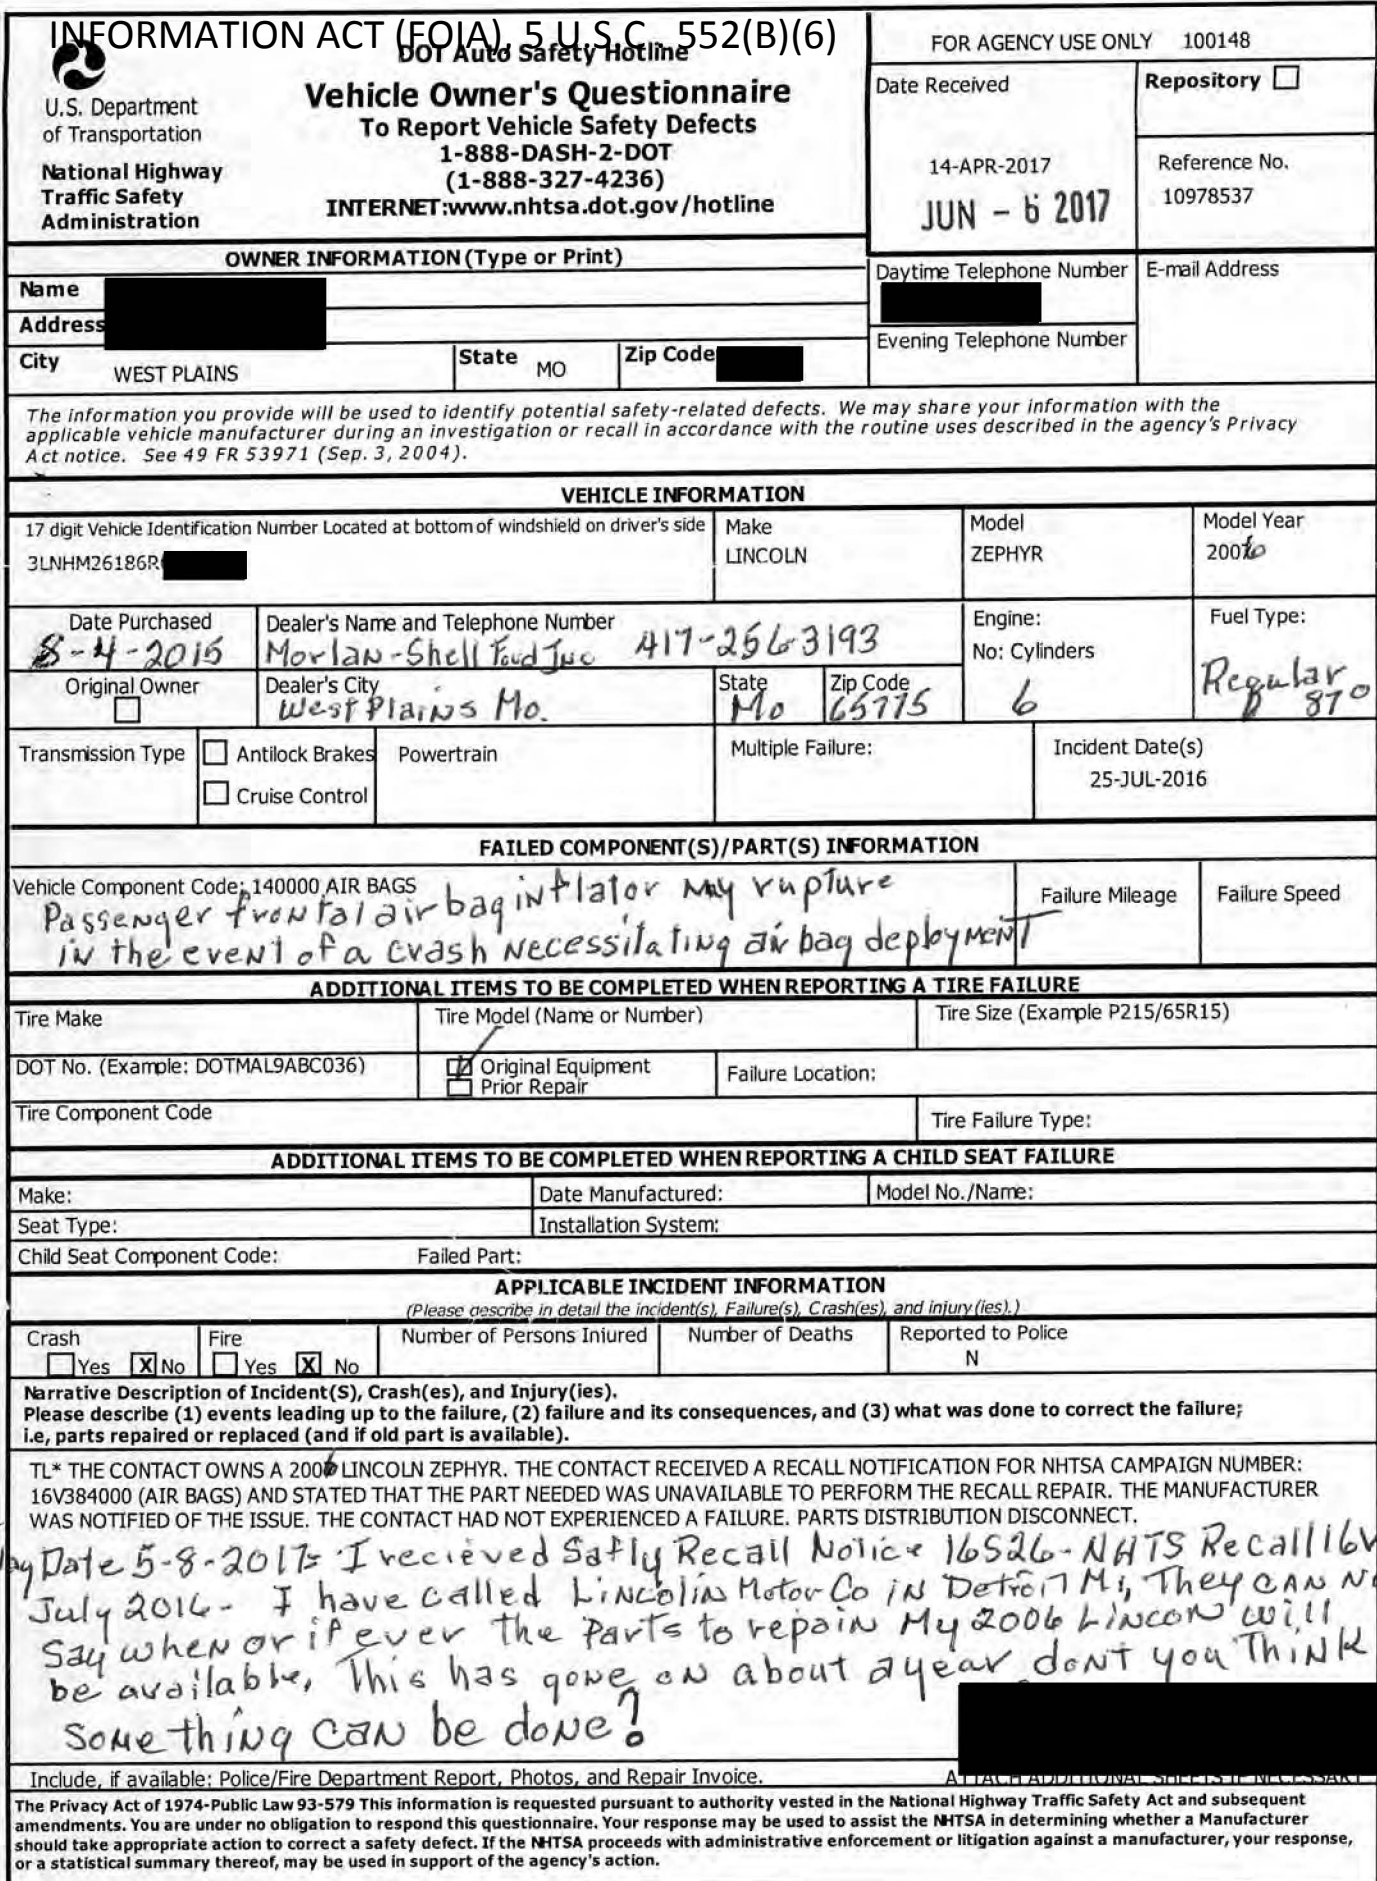 INFORMATION ACT (FOIA), 5 U.S.C. 552(B)(6)
DOT Auto Safety Hotline
Vehicle Owner's Questionnaire
To Report Vehicle Safety Defects
1-888-DASH-2-DOT
(1-888-327-4236)
INTERNET:www.nhtsa.dot.gov/hotline
U.S. Department
of Transportation
National Highway
Traffic Safety
Administration
FOR AGENCY USE ONLY 100148
Date Received
14-APR-2017
JUN - 6 2017
Repository
Reference No.
10978537
OWNER INFORMATION (Type or Print)
Name
Address
City WEST PLAINS State MO Zip Code
Daytime Telephone Number
Evening Telephone Number
E-mail Address
The information you provide will be used to identify potential safety-related defects. We may share your information with the
applicable vehicle manufacturer during an investigation or recall in accordance with the routine uses described in the agency's Privacy
Act notice. See 49 FR 53971 (Sep. 3, 2004).
VEHICLE INFORMATION
17 digit Vehicle Identification Number Located at bottom of windshield on driver's side
3LNHM26186R
Make
LINCOLN
Model
ZEPHYR
Model Year
2006
Date Purchased
8-4-2015
Dealer's Name and Telephone Number
Morlan-Shell Foud Inc 417-256-3193
Engine:
No: Cylinders
6
Fuel Type:
Regular
870
Original Owner
Dealer's City
West Plains Mo.
State
Mo
Zip Code
65775
Transmission Type
Antilock Brakes
Cruise Control
Powertrain
Multiple Failure:
Incident Date(s)
25-JUL-2016
FAILED COMPONENT(S)/PART(S) INFORMATION
Vehicle Component Code: 140000 AIR BAGS
Passenger frontal air bag inflator may rupture
in the event of a crash necessitating air bag deployment
Failure Mileage
Failure Speed
ADDITIONAL ITEMS TO BE COMPLETED WHEN REPORTING A TIRE FAILURE
Tire Make
Tire Model (Name or Number)
Tire Size (Example P215/65R15)
DOT No. (Example: DOTMAL9ABC036)
Original Equipment
Prior Repair
Failure Location:
Tire Component Code
Tire Failure Type:
ADDITIONAL ITEMS TO BE COMPLETED WHEN REPORTING A CHILD SEAT FAILURE
Make:
Date Manufactured:
Model No./Name:
Seat Type:
Installation System:
Child Seat Component Code:
Failed Part:
APPLICABLE INCIDENT INFORMATION
(Please describe in detail the incident(s), Failure(s), Crash(es), and injury(ies).)
Crash
Yes X No
Fire
Yes X No
Number of Persons Injured
Number of Deaths
Reported to Police
N
Narrative Description of Incident(S), Crash(es), and Injury(ies).
Please describe (1) events leading up to the failure, (2) failure and its consequences, and (3) what was done to correct the failure;
i.e, parts repaired or replaced (and if old part is available).
TL* THE CONTACT OWNS A 2006 LINCOLN ZEPHYR. THE CONTACT RECEIVED A RECALL NOTIFICATION FOR NHTSA CAMPAIGN NUMBER:
16V384000 (AIR BAGS) AND STATED THAT THE PART NEEDED WAS UNAVAILABLE TO PERFORM THE RECALL REPAIR. THE MANUFACTURER
WAS NOTIFIED OF THE ISSUE. THE CONTACT HAD NOT EXPERIENCED A FAILURE. PARTS DISTRIBUTION DISCONNECT.
Date 5-8-2017: I recieved Safly Recall Notice 16S26-NHTS Recall 16V
July 2016- I have called Lincolin Motor Co in Detroit Mi, They can No
say when or if ever the Parts to repair My 2006 Lincon will
be available, This has gone on about a year dont you Think
Something can be done?
Include, if available: Police/Fire Department Report, Photos, and Repair Invoice.
ATTACH ADDITIONAL SHEETS IF NECESSARY
The Privacy Act of 1974-Public Law 93-579 This information is requested pursuant to authority vested in the National Highway Traffic Safety Act and subsequent
amendments. You are under no obligation to respond this questionnaire. Your response may be used to assist the NHTSA in determining whether a Manufacturer
should take appropriate action to correct a safety defect. If the NHTSA proceeds with administrative enforcement or litigation against a manufacturer, your response,
or a statistical summary thereof, may be used in support of the agency's action.